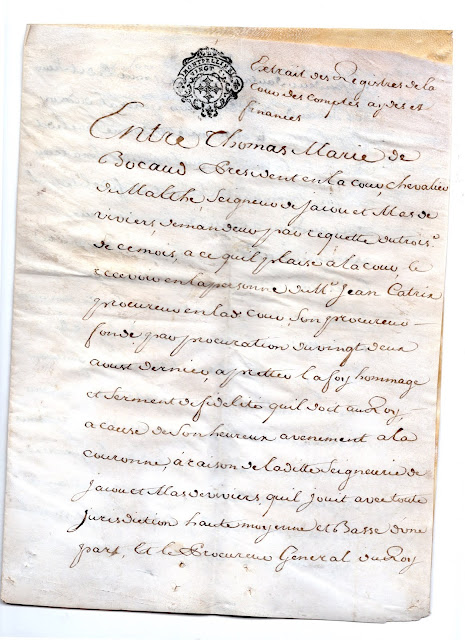 MONTPELLIER
VINGT
Extrait des Registres de la
cour des comptes aydes et
finances
Entre Thomas Marie de
Bocaud President en la cour, chevalier
de Malthe Seigneur de Jacou et Mas de
viviers, demandeur par requette du trois.e
de ce mois, a ce quil plaise a la cour, le
recevoir en la personne de M.e Jean Catrix
procureur en lad. cour, son procureur
fondé par procuration du vingt deux
aoust dernier, a pretter la foy hommage
et serment de fidelité quil doit au Roy
a cause de son heureux avenement a la
couronne, a raison de laditte Seigneurie de
Jacou et Mas de viviers, quil jouit avec toute
Jurisdiction haute moyenne et Basse d'une
part, Et le Procureur General du Roy